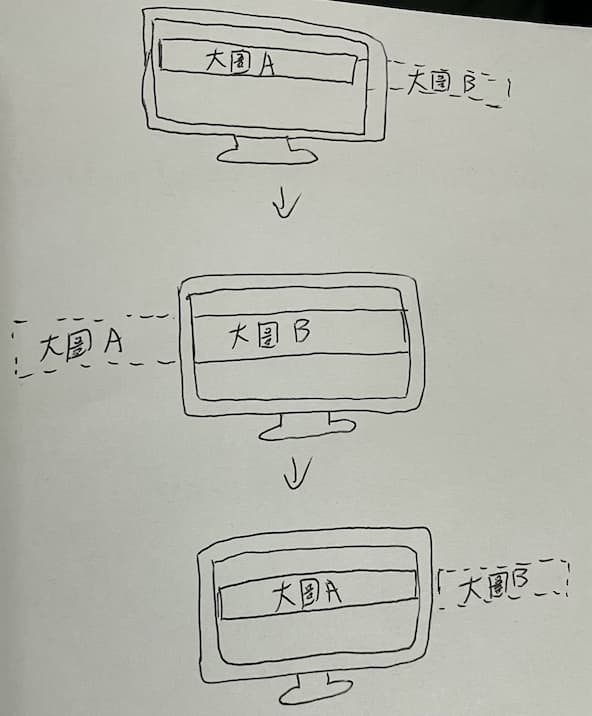 大圖 A
大圖 B
大圖 A
大圖 B
大圖 A
大圖 B